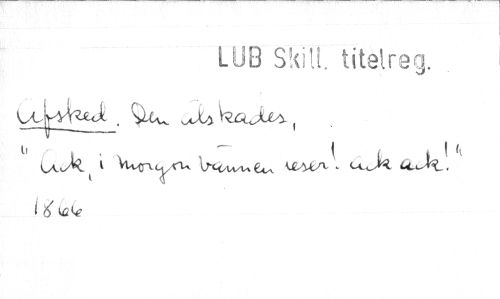 LUB Skill. titelreg.
Afsked. Den älskades,
"Ack, i morgon vännen reser! ack ack!"
1866